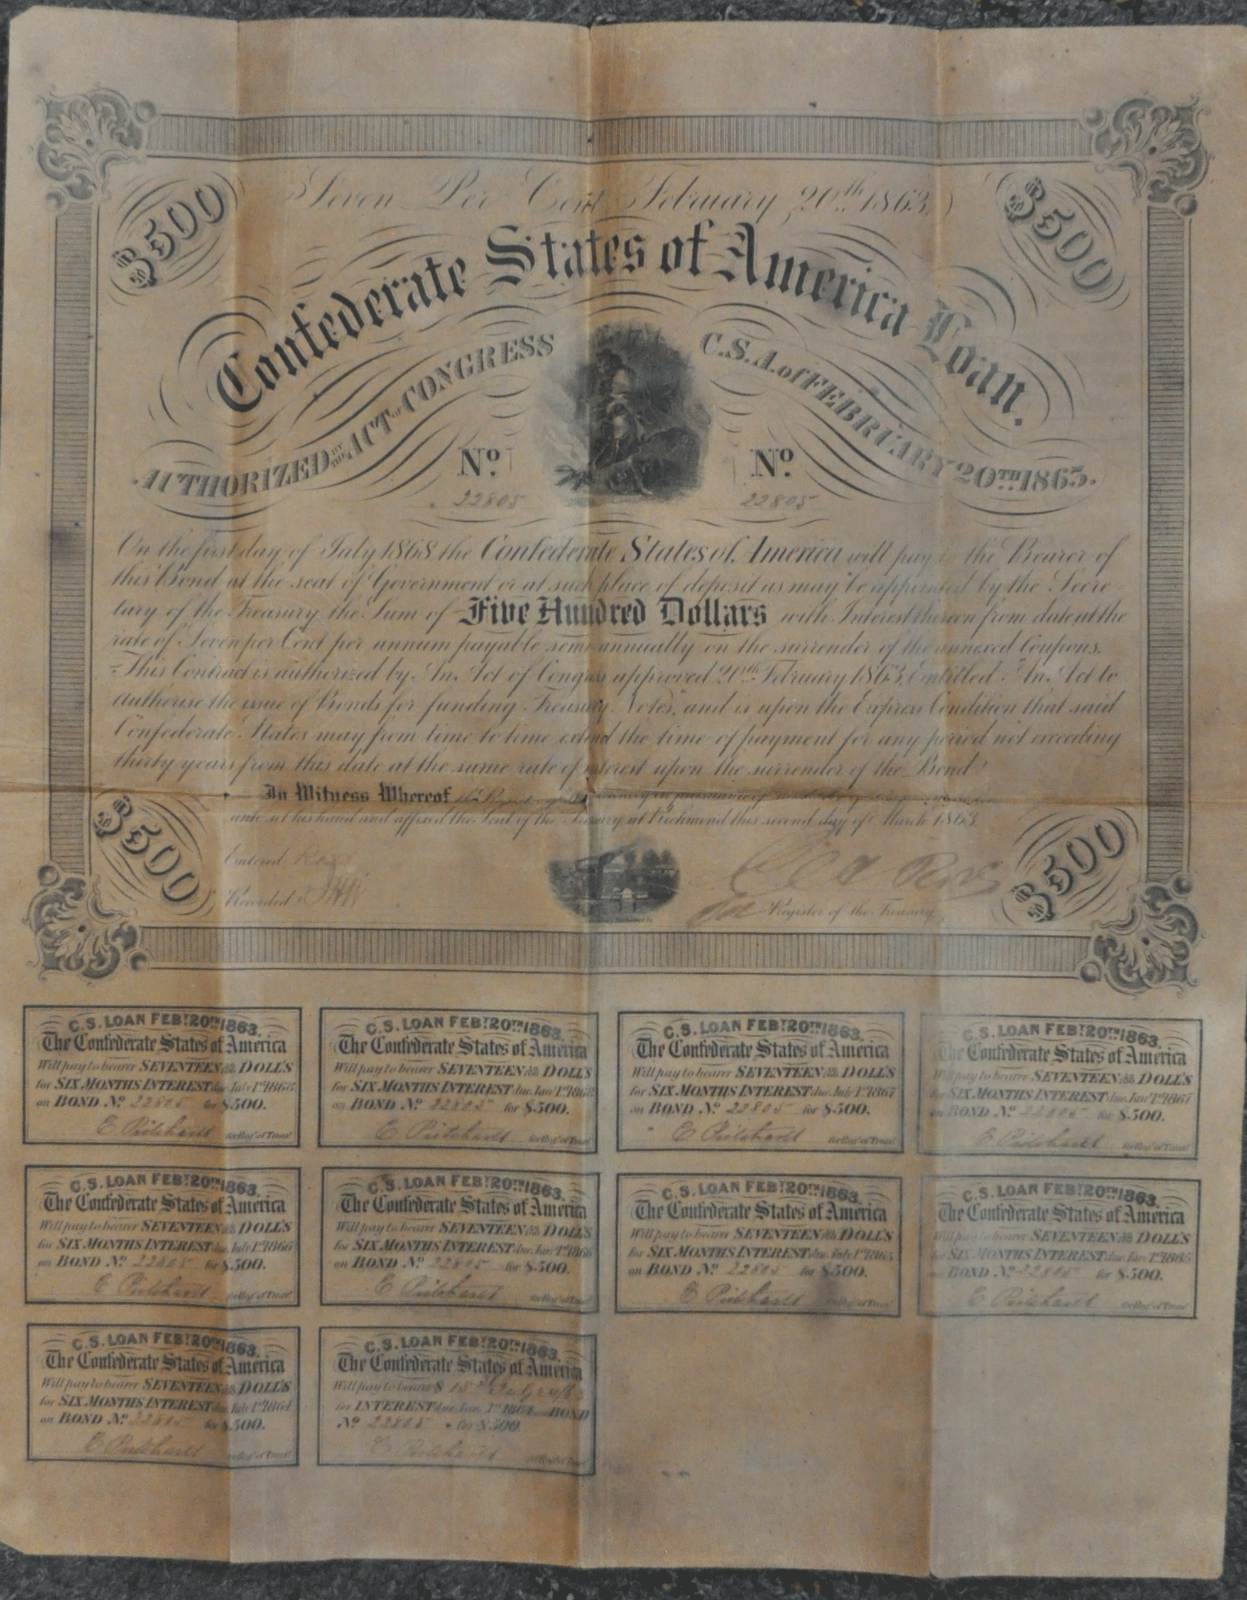 Seven Per Cent February 20th 1863.
$500
$500
Confederate States of America Loan.
AUTHORIZED BY THE ACT OF CONGRESS
C.S.A. of FEBRUARY 20TH 1863.
No. No.
22805 22805
On the first day of July 1868 the Confederate States of America will pay to the Bearer of
this Bond at the seat of Government or at such place of deposit as may be appointed by the Secre-
tary of the Treasury the Sum of Five Hundred Dollars with Interest thereon from date at the
rate of Seven per Cent per annum payable semi annually on the surrender of the annexed Coupons.
This Contract is authorized by An Act of Congress approved 20th February 1863, Entitled "An Act to
authorise the issue of Bonds for funding Treasury Notes", and is upon the Express Condition that said
Confederate States may from time to time extend the time of payment for any period not exceeding
thirty years from this date at the same rate of interest upon the surrender of the Bond.
In Witness Whereof the Register of the Treasury in pursuance of said
unto set his hand and affixed the Seal of the Treasury at Richmond this second day of March 1863
$500
$500
Entered
Recorded
Register of the Treasury
C.S. LOAN FEBY 20TH 1863.
The Confederate States of America
Will pay to bearer SEVENTEEN 50/100 DOLL'S
for SIX MONTHS INTEREST due July 1st 1868
on BOND No. 22805 for $500.
E Pritchard for Reg'r of Treas'y
C.S. LOAN FEBY 20TH 1863.
The Confederate States of America
Will pay to bearer SEVENTEEN 50/100 DOLL'S
for SIX MONTHS INTEREST due Jany 1st 1868
on BOND No. 22805 for $500.
E Pritchard for Reg'r of Treas'y
C.S. LOAN FEBY 20TH 1863.
The Confederate States of America
Will pay to bearer SEVENTEEN 50/100 DOLL'S
for SIX MONTHS INTEREST due July 1st 1867
on BOND No. 22805 for $500.
E Pritchard for Reg'r of Treas'y
C.S. LOAN FEBY 20TH 1863.
The Confederate States of America
Will pay to bearer SEVENTEEN 50/100 DOLL'S
for SIX MONTHS INTEREST due Jany 1st 1867
on BOND No. 22805 for $500.
E Pritchard for Reg'r of Treas'y
C.S. LOAN FEBY 20TH 1863.
The Confederate States of America
Will pay to bearer SEVENTEEN 50/100 DOLL'S
for SIX MONTHS INTEREST due July 1st 1866
on BOND No. 22805 for $500.
E Pritchard for Reg'r of Treas'y
C.S. LOAN FEBY 20TH 1863.
The Confederate States of America
Will pay to bearer SEVENTEEN 50/100 DOLL'S
for SIX MONTHS INTEREST due Jany 1st 1866
on BOND No. 22805 for $500.
E Pritchard for Reg'r of Treas'y
C.S. LOAN FEBY 20TH 1863.
The Confederate States of America
Will pay to bearer SEVENTEEN 50/100 DOLL'S
for SIX MONTHS INTEREST due July 1st 1865
on BOND No. 22805 for $500.
E Pritchard for Reg'r of Treas'y
C.S. LOAN FEBY 20TH 1863.
The Confederate States of America
Will pay to bearer SEVENTEEN 50/100 DOLL'S
for SIX MONTHS INTEREST due Jany 1st 1865
on BOND No. 22805 for $500.
E Pritchard for Reg'r of Treas'y
C.S. LOAN FEBY 20TH 1863.
The Confederate States of America
Will pay to bearer SEVENTEEN 50/100 DOLL'S
for SIX MONTHS INTEREST due July 1st 1864
on BOND No. 22805 for $500.
E Pritchard for Reg'r of Treas'y
C.S. LOAN FEBY 20TH 1863.
The Confederate States of America
Will pay to bearer $
for INTEREST due Jany 1st 1864 on BOND
No. 22805 for $500
E Pritchard for Reg'r of Treas'y